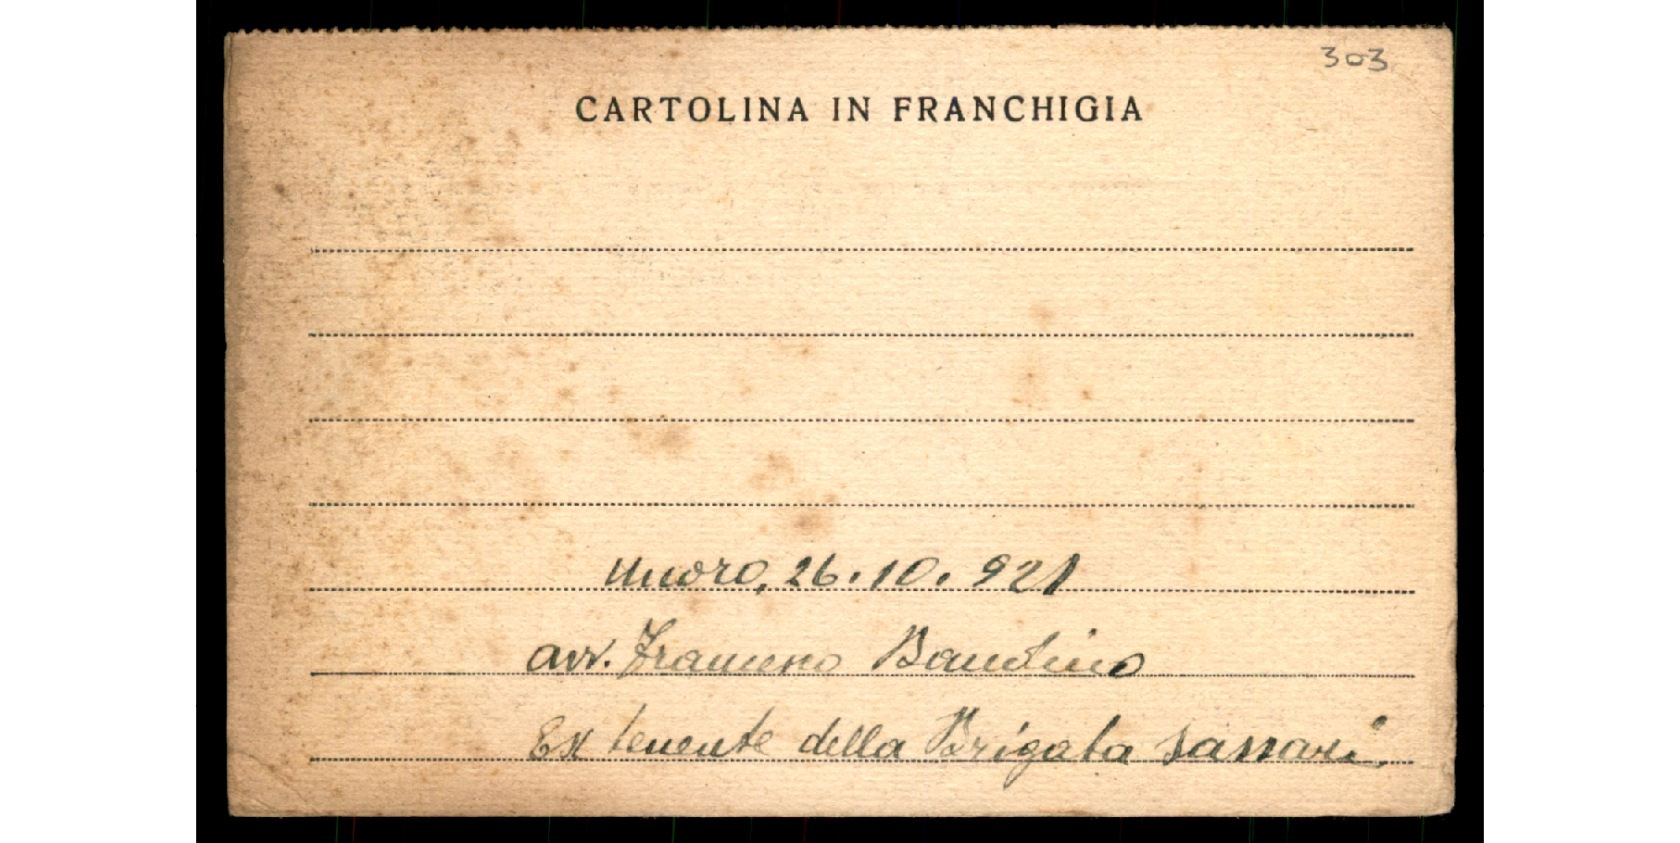 303
CARTOLINA IN FRANCHIGIA
Nuoro, 26.10.921
avv. Francesco Bandino
Ex tenente della Brigata Sassari